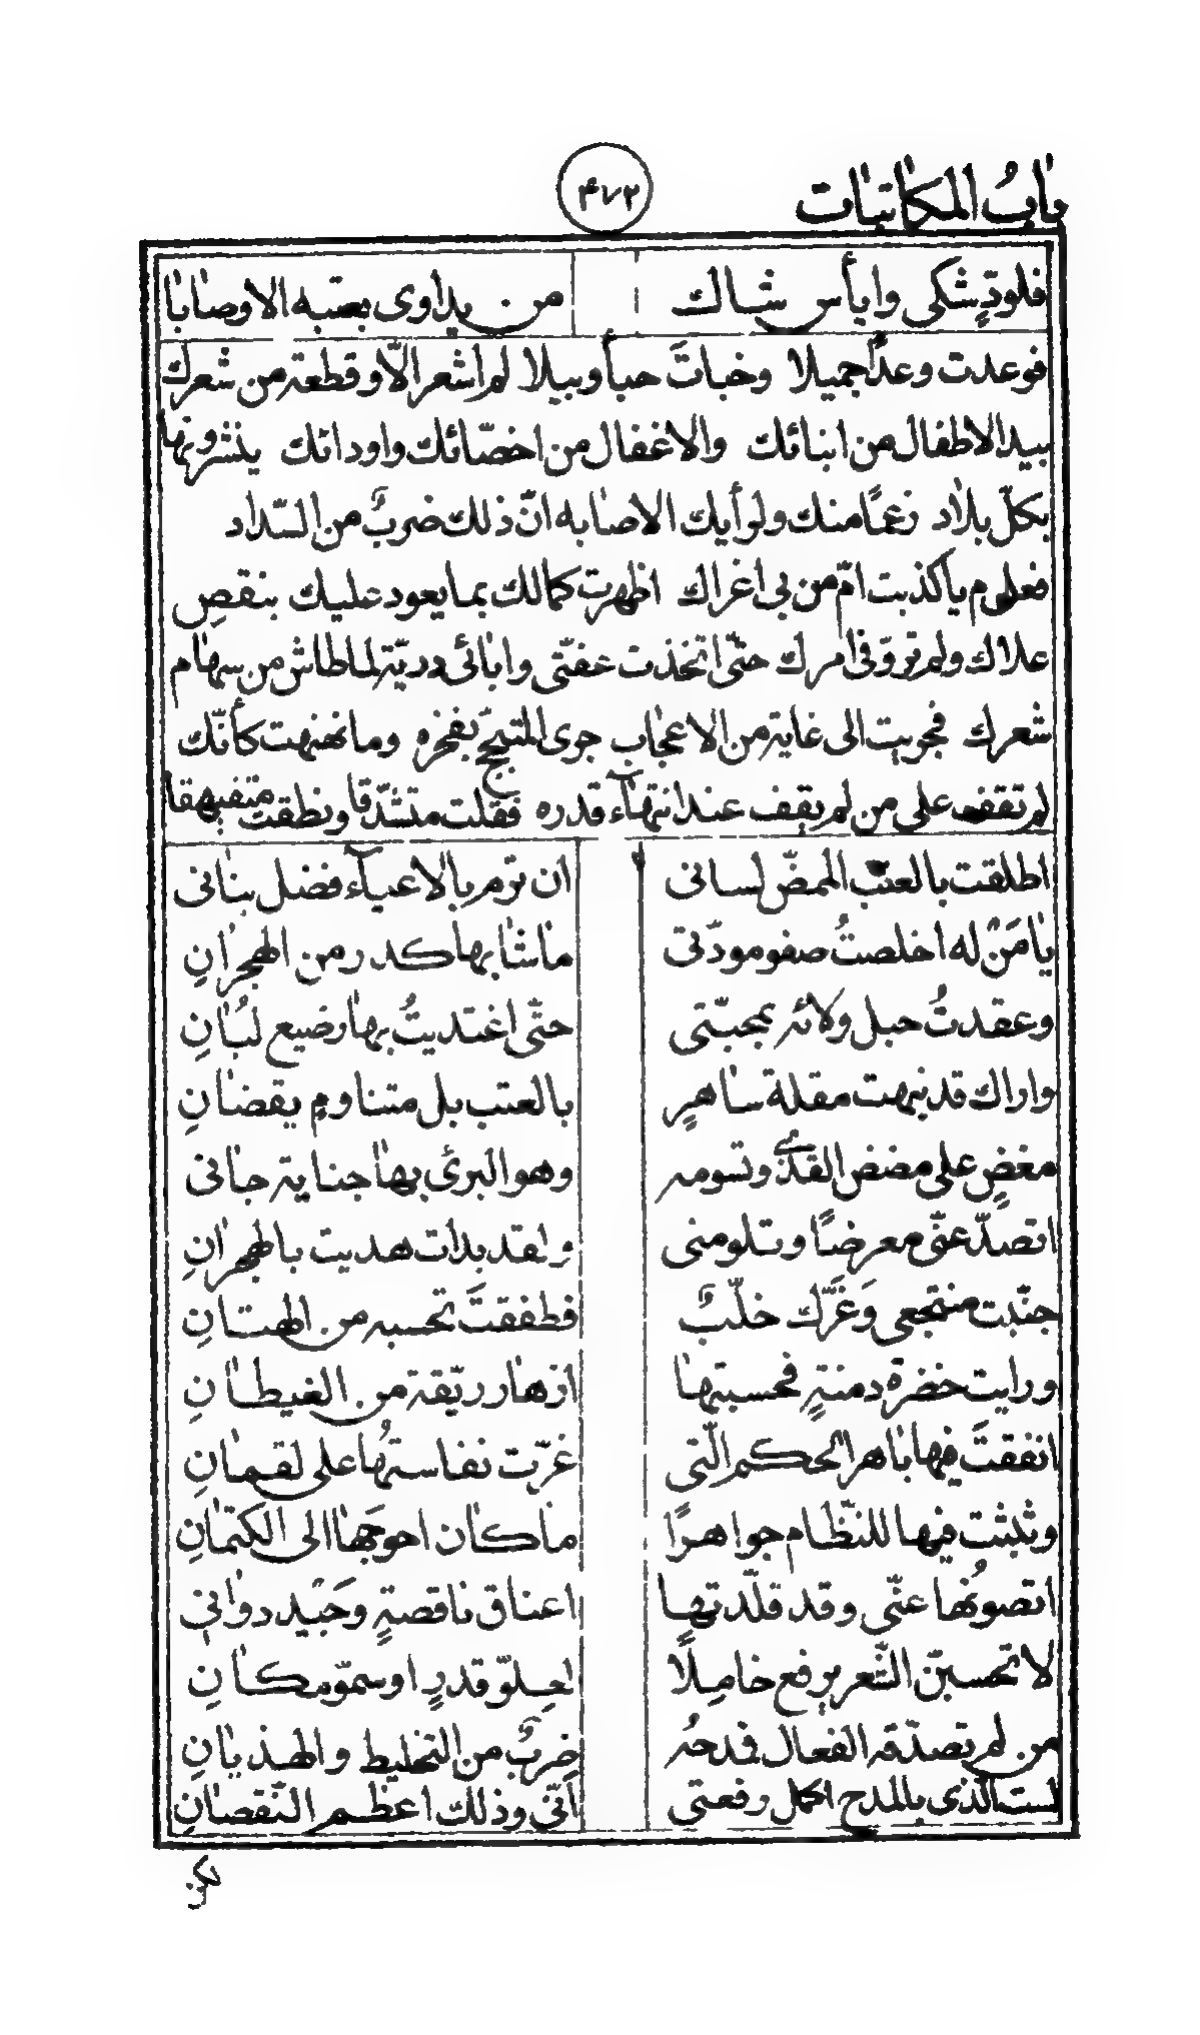 باب المكاتبات
۴۷۲
فلودٍّ شكى وايأس شاك من يداوى بعتبه الاوصابا
فوعدت وعدًا جميلا وخبات حبأ وبيلا لم اشعر الّا وقطعة من شعرك
بيد الاطفال من ابنائك والاغفال من اخصّائك واودائك ينشرونها
بكلّ بلاد زعمًا منك ولو أيك الاصابه انّ ذلك ضربٌ من السّداد
فعلى م يا كذبت امّ من بى اغراك اظهرت كمالك بما يعود عليك بنقص
علاك ولم تروّ فى امرك حتّى اتخذت عفّتى وابائى دريّة لما طاش من سهام
شعرك فجريت الى غاية من الاعجاب جرى المتبجّح بفخره وما نهنهت كأنّك
لم تقف على من لم يقف عند انتهآء قدره فقلت متشدّقا ونطقت متفيهقا
اطلقت بالعتب الممضّ لسانى ان ترم بالاعيآء فضل بنانى
يا مَنْ له اخلصتُ صفو مودّتى ما شابها كدر من الهجرانِ
وعقدتُ حبل ولائه بمحبّتى حتّى اغتديتُ بها رضيع لبُانِ
واراك قد نبهت مقلة ساهرٍ بالعتب بل متناومٍ يقضانِ
مغضٍ على مضض القذى وتسومه وهو البرئ بها جناية جانى
اتصدّ عنّى معرضًا وتلومنى ولقد بدات هديت بالهجرانِ
جنّبت منتجعى وَغَرَّك خلّبٌ فطفقتَ تحسبه من الهتانِ
ورايت خضرة دمنةٍ فحسبتها ازهار ريّقة من الغيطانِ
انفقتَ فيها باهر الحكم الّتى غرّت نفاستهُا على لقمانِ
وثبثت فيها للنّظام جواهرًا ما كان احوجَها الى الكتمانِ
اتصونُها عنّى وقد قلّدتها اعناق ناقصةٍ وجَيْد دوانى
لا تحسبنّ الشّعر يرفع خاملًا لعلوّ قدرٍ او سموّ مكانِ
من لم تصدّقه الفعال فمدحُه ضربٌ من التخليط والهذيانِ
لست الّذى بالمدح اكمل رفعتى أنّى وذلك اعظم النّقصانِ
لكن